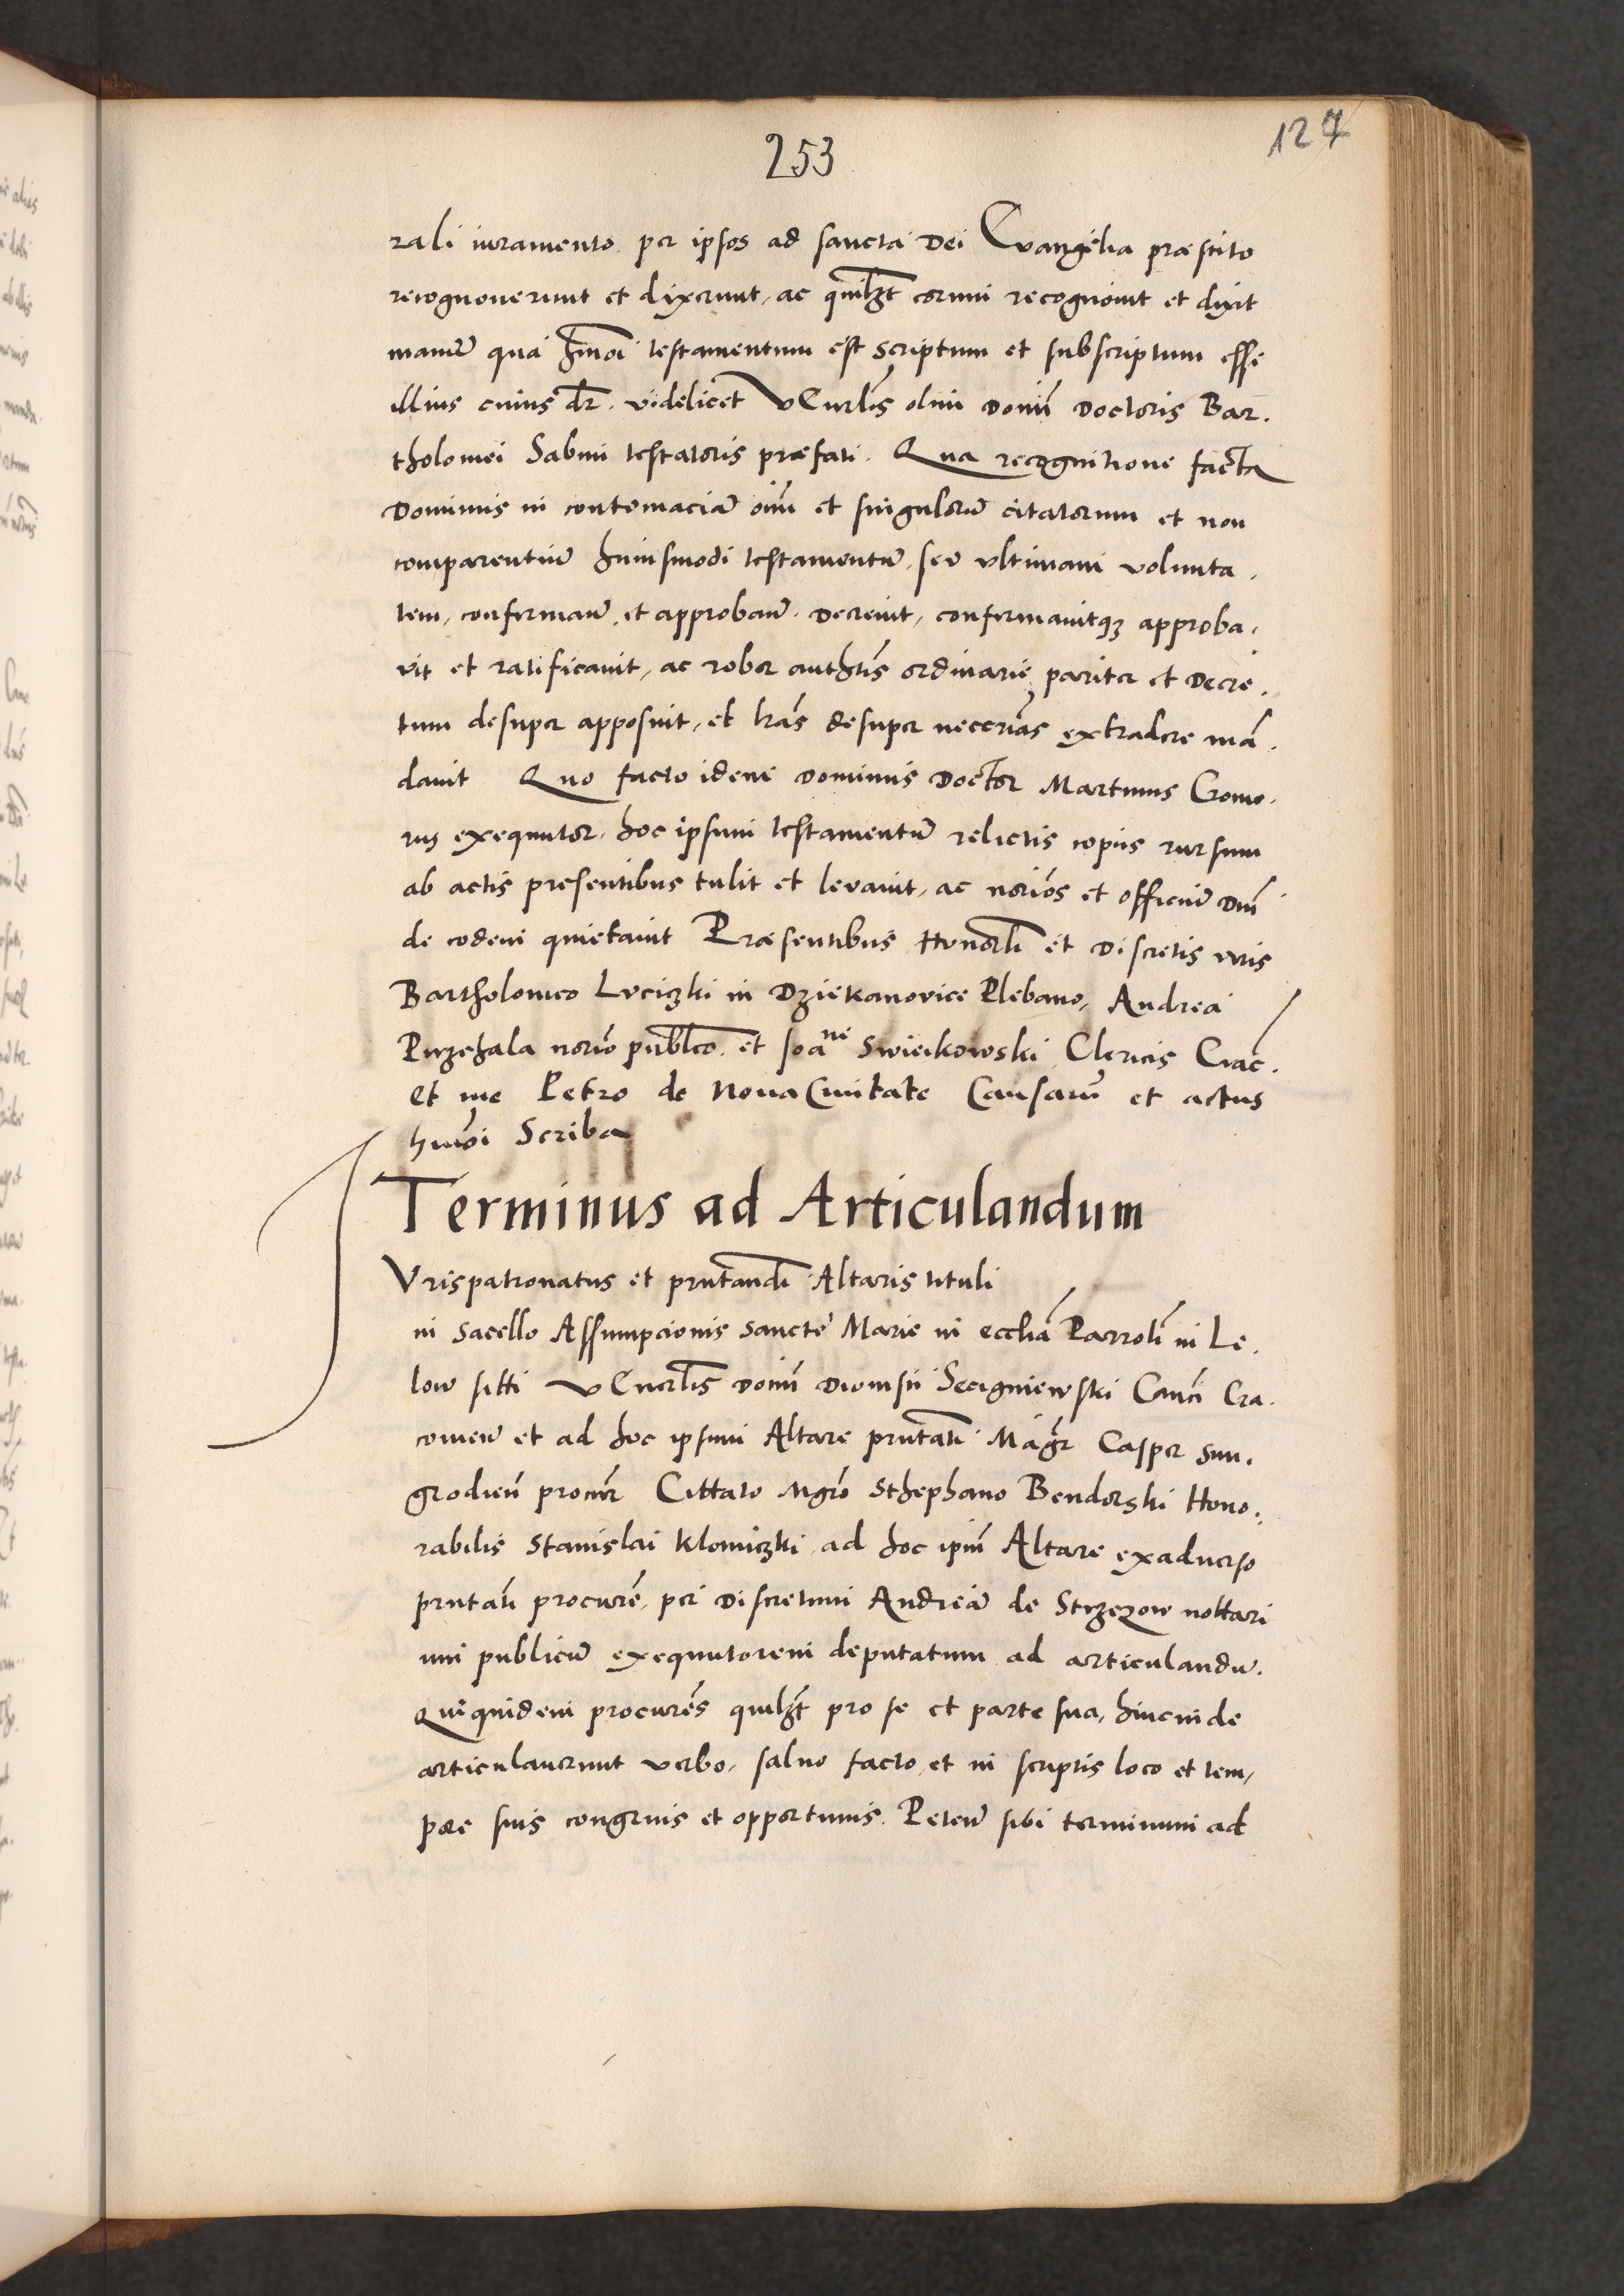 253
127
rali iuramento per ipsos ad sancta Dei Evangelia præstito
recognoverunt et dixerunt, ac quilibꝫt eorum recognovit et dixit
manum qua hmoi testamentum est scriptum et subscriptum esse
illius cuius dr. videlicet Venerlis olim Domini Doctoris Bar.
tholomei Sabini testatoris præfati. Qua recognitione facta
Dominus in contumaciam oim et singulorum citatorum et non
comparentium huiusmodi testamentum, seu ultimam volunta.
tem, confirmanm et approbanm. Decrevit, confirmavitqꝫ approba.
vit et ratificavit, ac robor authtis ordinarie pariter et Decre.
tum desuper apposuit, et lras desuper neccrias extradere man.
davit Quo facto idem Dominus Doctor Martinus Gomo.
rus exequutor, hoc ipsum testamentum relictis copiis rursum
ab actis presentibus tulit et levavit, ac norios et officium Dni
de eodem quietavit Præsentibus Honorli et Discretis viris
Bartholomeo Luciczki in Dziekanovice Plebano, Andrea
Przehala norio publco. et Joane Swieikowski Clericis Crac.
Et me Petro de Nova Civitate Causarum et actus
humoi Scriba
Terminus ad Articulandum
IUrispatronatus et prntandi Altaris tituli
in sacello Assumpcionis sancte Marie in ecclia Parroli in Le.
low siti Venerlis Domini Dionisii Seczigniewski Canci Cra.
covien et ad hoc ipsum Altare prntati Magr Casper sun.
grodien procur Cittato Mgro Sthephano Bendorski Hono.
rabilis Stanislai Klomiczki ad hoc ipm Altare exadverso
prntati procure, per Discretum Andream de Strzezow nottari
um publicum exequutorem deputatum ad articulandum.
Quiquidem procures quilꝫt pro se et parte sua, hincinde
articulaverunt verbo, salvo facto, et in scriptis loco et tem,
pore suis congruis et opportunis. Peten sibi terminum ad